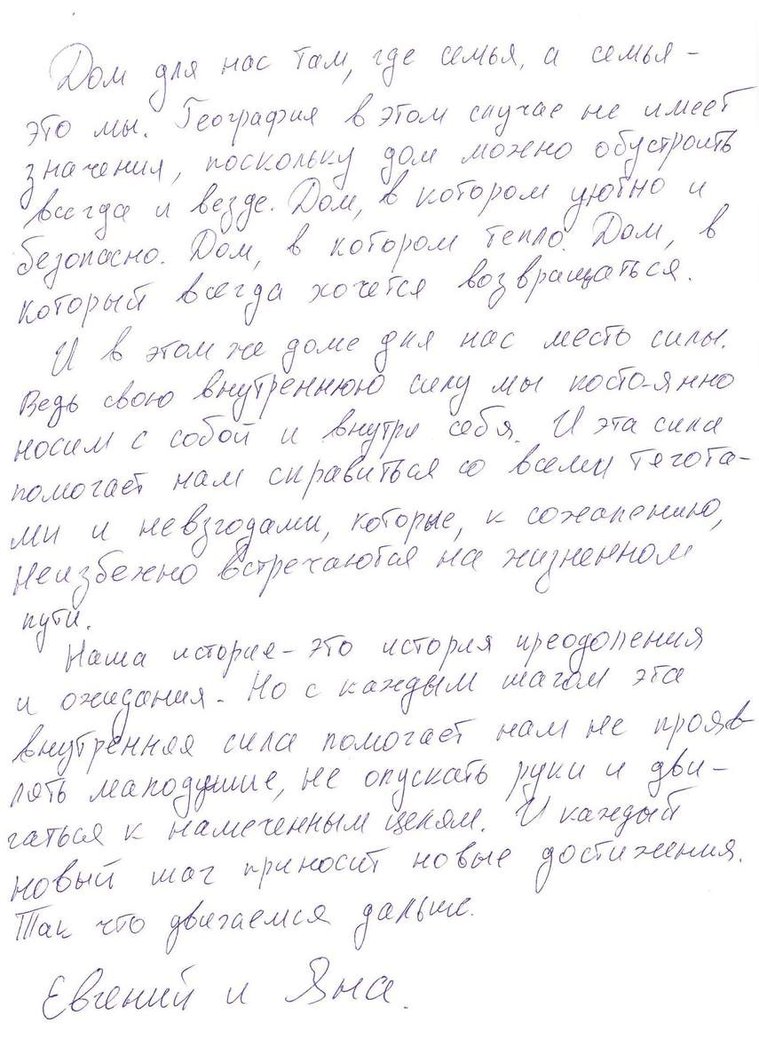 Дом для нас там, где семья, а семья -
это мы. География в этом случае не имеет
значения, поскольку дом можно обустроить
всегда и везде. Дом, в котором уютно и
безопасно. Дом, в котором тепло. Дом, в
который всегда хочется возвращаться.
И в этом же доме для нас место силы.
Ведь свою внутреннюю силу мы постоянно
носим с собой и внутри себя. И эта сила
помогает нам справиться со всеми тягота-
ми и невзгодами, которые, к сожалению,
неизбежно встречаются на жизненном
пути.
Наша история - это история преодоления
и ожидания. Но с каждым шагом эта
внутренняя сила помогает нам не прояв-
лять малодушие, не опускать руки и дви-
гаться к намеченным целям. И каждый
новый шаг приносит новые достижения.
Так что двигаемся дальше.
Евгений и Яна.